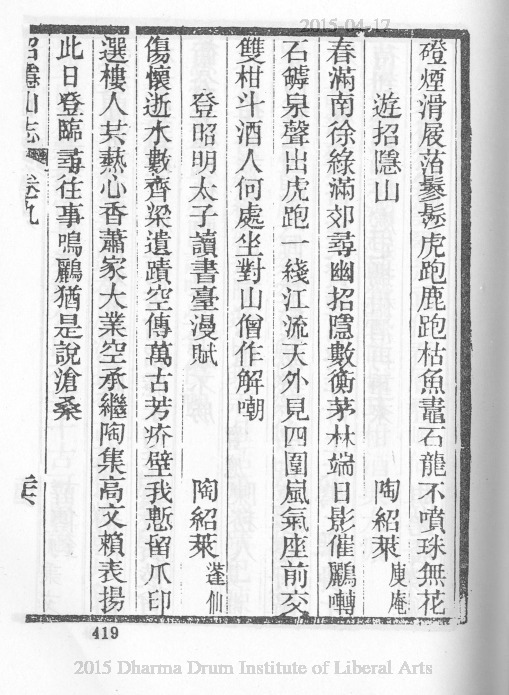 2015-04-17
磴煙滑屐落鬖髿虎跑鹿跑枯魚鼃石龍不噴珠無花
遊招隱山　陶紹萊 庾庵
春滿南徐綠滿郊尋幽招隱數衡茅林端日影催鸝囀
石罅泉聲出虎跑一綫江流天外見四圍嵐氣座前交
雙柑斗酒人何處坐對山僧作解嘲
登昭明太子讀書臺漫賦　陶紹萊 蓬仙
傷懷逝水數齊梁遺蹟空傳萬古芳疥壁我慙留爪印
選樓人共熱心香蕭家大業空承繼陶集高文賴表揚
此日登臨尋往事鳴鸝猶是說滄桑
招隱山志 卷九
419
2015 Dharma Drum Institute of Liberal Arts